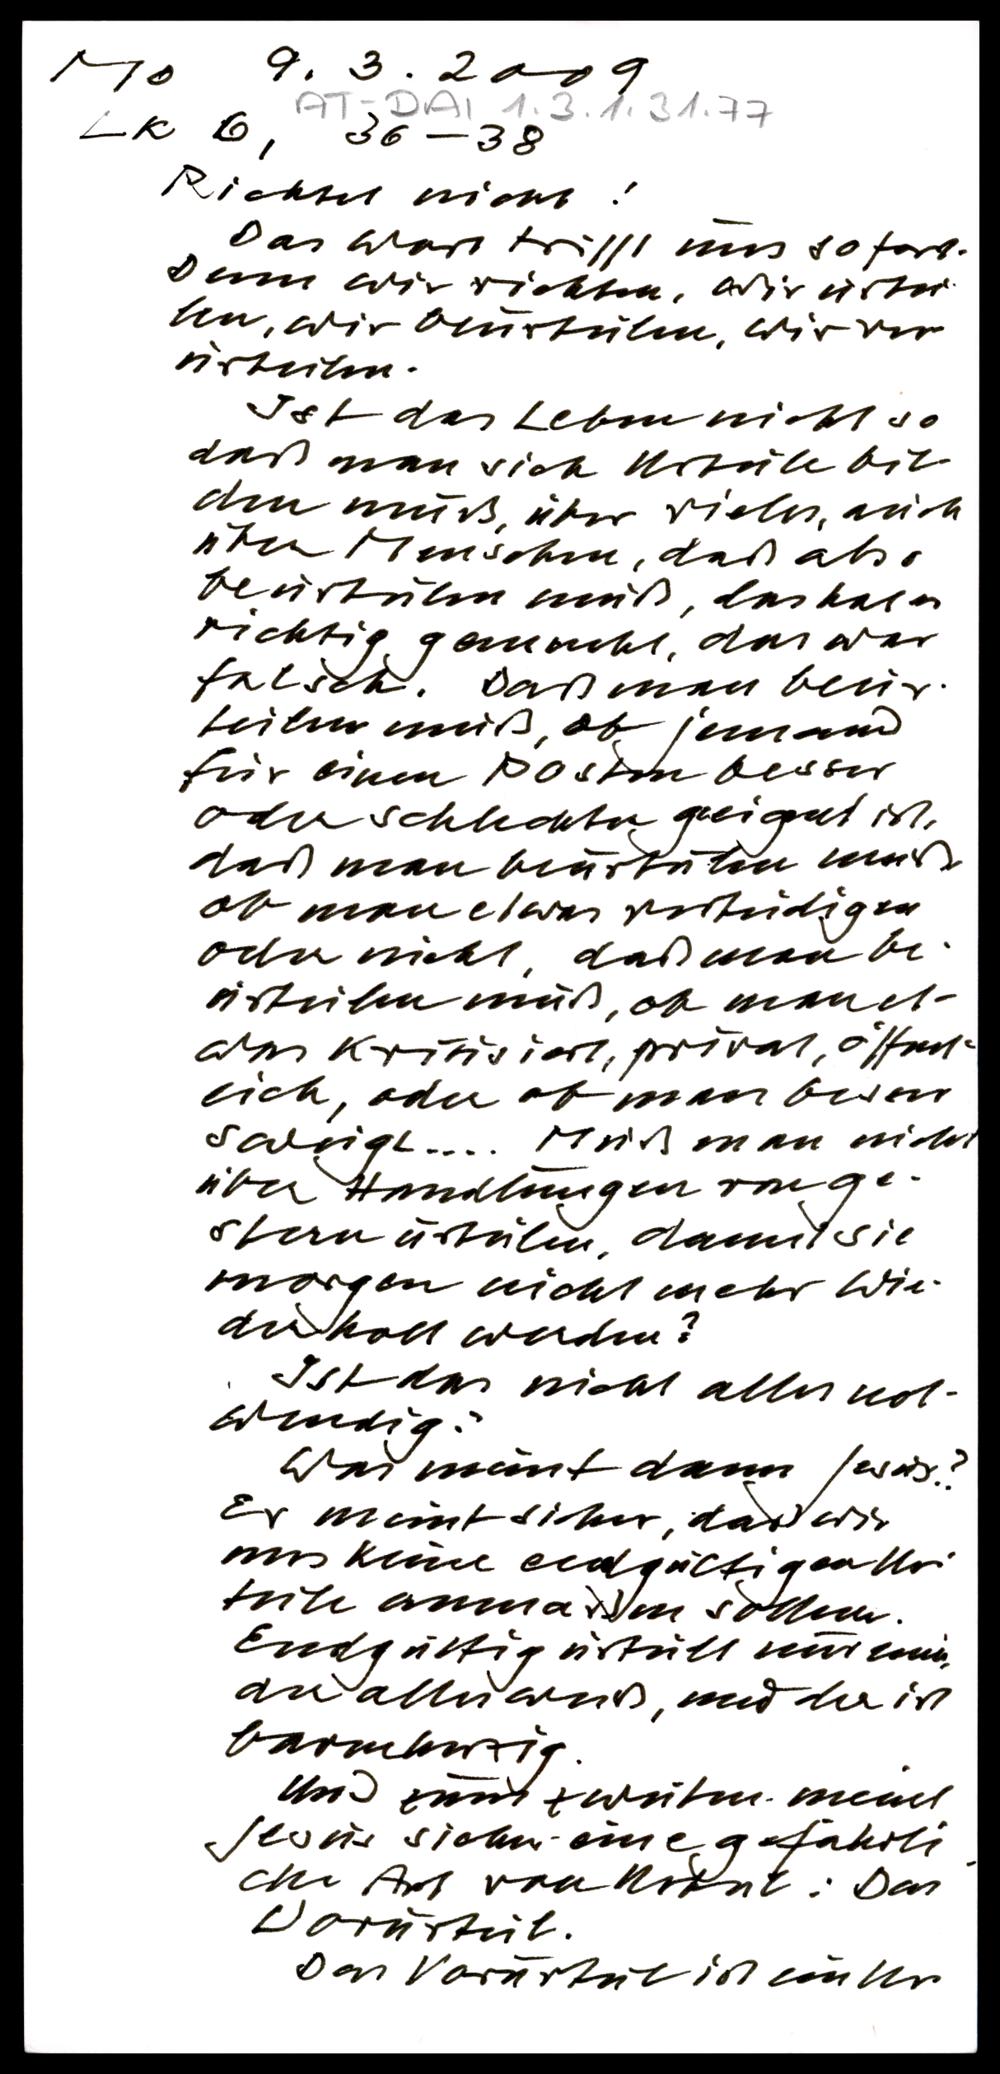 Mo 9.3.2009
AT-DAI 1.3.1.31.77
Lk 6, 36–38
Richtet nicht!
Das Wort trifft uns sofort.
Denn wir richten, wir urtei-
len, wir beurteilen, wir ver
urteilen.
Ist das Leben nicht so
daß man sich Urteile bil-
den muß, über vieles, auch
über Menschen, daß also
beurteilen muß, das hat er
richtig gemacht, das war
falsch. Daß man beur-
teilen muß, ob jemand
für einen Posten besser
oder schlechter geeignet ist,
daß man beurteilen muß
ob man etwas verteidigen
oder nicht, daß man be-
urteilen muß, ob man et-
was kritisiert, privat, öffent-
lich, oder ob man besser
schweigt.... Muß man nicht
über Handlungen von ge-
stern urteilen, damit sie
morgen nicht mehr wie-
derholt werden?
Ist das nicht alles not-
wendig?
Was meint dann Jesus?
Er meint sicher, daß wir
uns keine endgültigen Ur-
teile anmaßen sollen.
Endgültig urteilt nur einer,
der alles weiß, und der ist
barmherzig.
Und zum zweiten meint
Jesus sicher eine gefährli
che Art von Urteil: Das
Vorurteil.
Das Vorurteil ist ein Ur